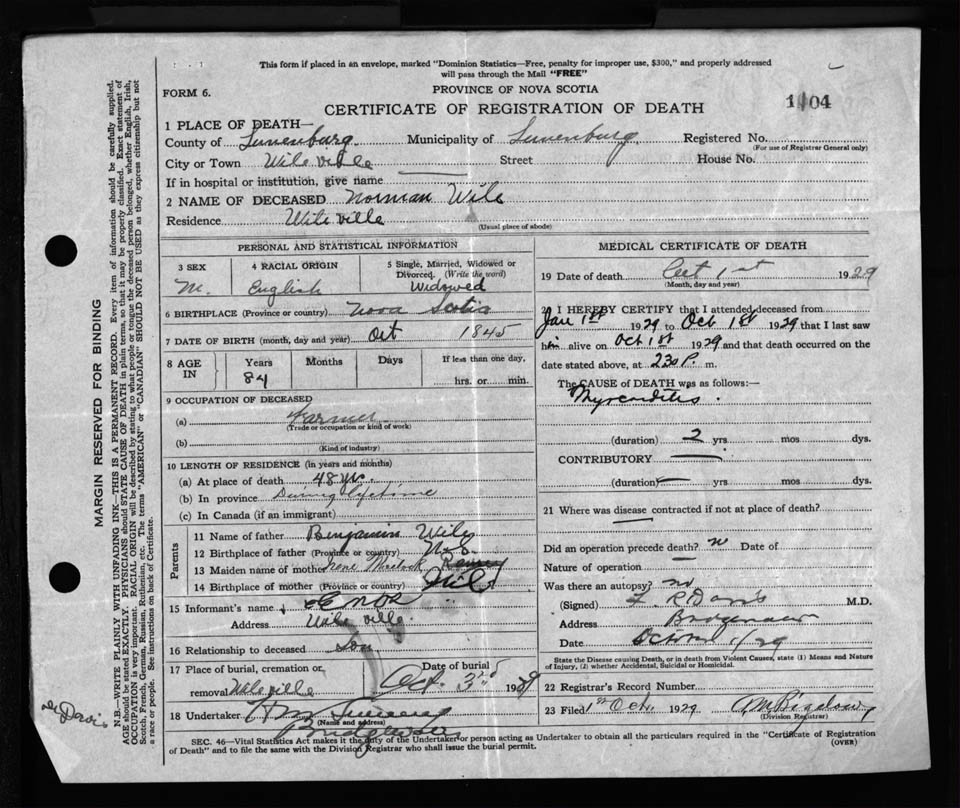 This form if placed in an envelope, marked "Dominion Statistics—Free, penalty for improper use, $300," and properly addressed
will pass through the Mail "FREE"
FORM 6.
PROVINCE OF NOVA SCOTIA
CERTIFICATE OF REGISTRATION OF DEATH
1104
1 PLACE OF DEATH—
County of Lunenburg Municipality of Lunenburg Registered No.
(For use of Registrar General only)
City or Town Wileville Street House No.
If in hospital or institution, give name
2 NAME OF DECEASED Norman Wile
Residence Wileville
(Usual place of abode)
PERSONAL AND STATISTICAL INFORMATION
3 SEX M. 4 RACIAL ORIGIN English 5 Single, Married, Widowed or Divorced. (Write the word) Widowed
6 BIRTHPLACE (Province or country) Nova Scotia
7 DATE OF BIRTH (month, day and year) Oct 1845
8 AGE IN Years 84 Months Days If less than one day, hrs. or min.
9 OCCUPATION OF DECEASED
(a) Farmer
(Trade or occupation or kind of work)
(b)
(Kind of industry)
10 LENGTH OF RESIDENCE (in years and months)
(a) At place of death 48 yrs.
(b) In province During lifetime
(c) In Canada (if an immigrant)
Parents
11 Name of father Benjamin Wile
12 Birthplace of father (Province or country) N.S.
13 Maiden name of mother
14 Birthplace of mother (Province or country)
15 Informant's name Enos
Address Wileville
16 Relationship to deceased Son
17 Place of burial, cremation or removal Wileville Date of burial Oct. 3rd 1929
18 Undertaker
(Name and address)
Bridgewater
MEDICAL CERTIFICATE OF DEATH
19 Date of death Oct 1st 1929
(Month, day and year)
20 I HEREBY CERTIFY that I attended deceased from
Jan 1st 1929 to Oct 1st 1929 that I last saw
him alive on Oct 1st 1929 and that death occurred on the
date stated above, at 230 P. m.
The CAUSE OF DEATH was as follows:—
Myocarditis.
(duration) 2 yrs mos dys.
CONTRIBUTORY
(duration) yrs mos dys.
21 Where was disease contracted if not at place of death?
Did an operation precede death? no Date of
Nature of operation
Was there an autopsy? no
(Signed) Davis M.D.
Address Bridgewater
Date October 1/29
State the Disease causing Death, or in death from Violent Causes, state (1) Means and Nature
of Injury, (2) whether Accidental, Suicidal or Homicidal.
22 Registrar's Record Number
23 Filed 1st Oct. 1929 A M Bigelow
(Division Registrar)
SEC. 46—Vital Statistics Act makes it the duty of the Undertaker or person acting as Undertaker to obtain all the particulars required in the "Certificate of Registration
of Death" and to file the same with the Division Registrar who shall issue the burial permit.
(OVER)
MARGIN RESERVED FOR BINDING
N.B.—WRITE PLAINLY WITH UNFADING INK—THIS IS A PERMANENT RECORD. Every item of information should be carefully supplied.
AGE should be stated EXACTLY. PHYSICIANS should STATE CAUSE OF DEATH in plain terms, so that it may be properly classified. Exact statement of
OCCUPATION is very important. RACIAL ORIGIN will be described by stating to what people or tongue the deceased person belonged, whether English, Irish,
Scotch, French, German, Russian, Ruthenian, etc. The terms "AMERICAN" or "CANADIAN" SHOULD NOT BE USED as they express citizenship but not
a race or people. See instructions on back of Certificate.
Dr Davis